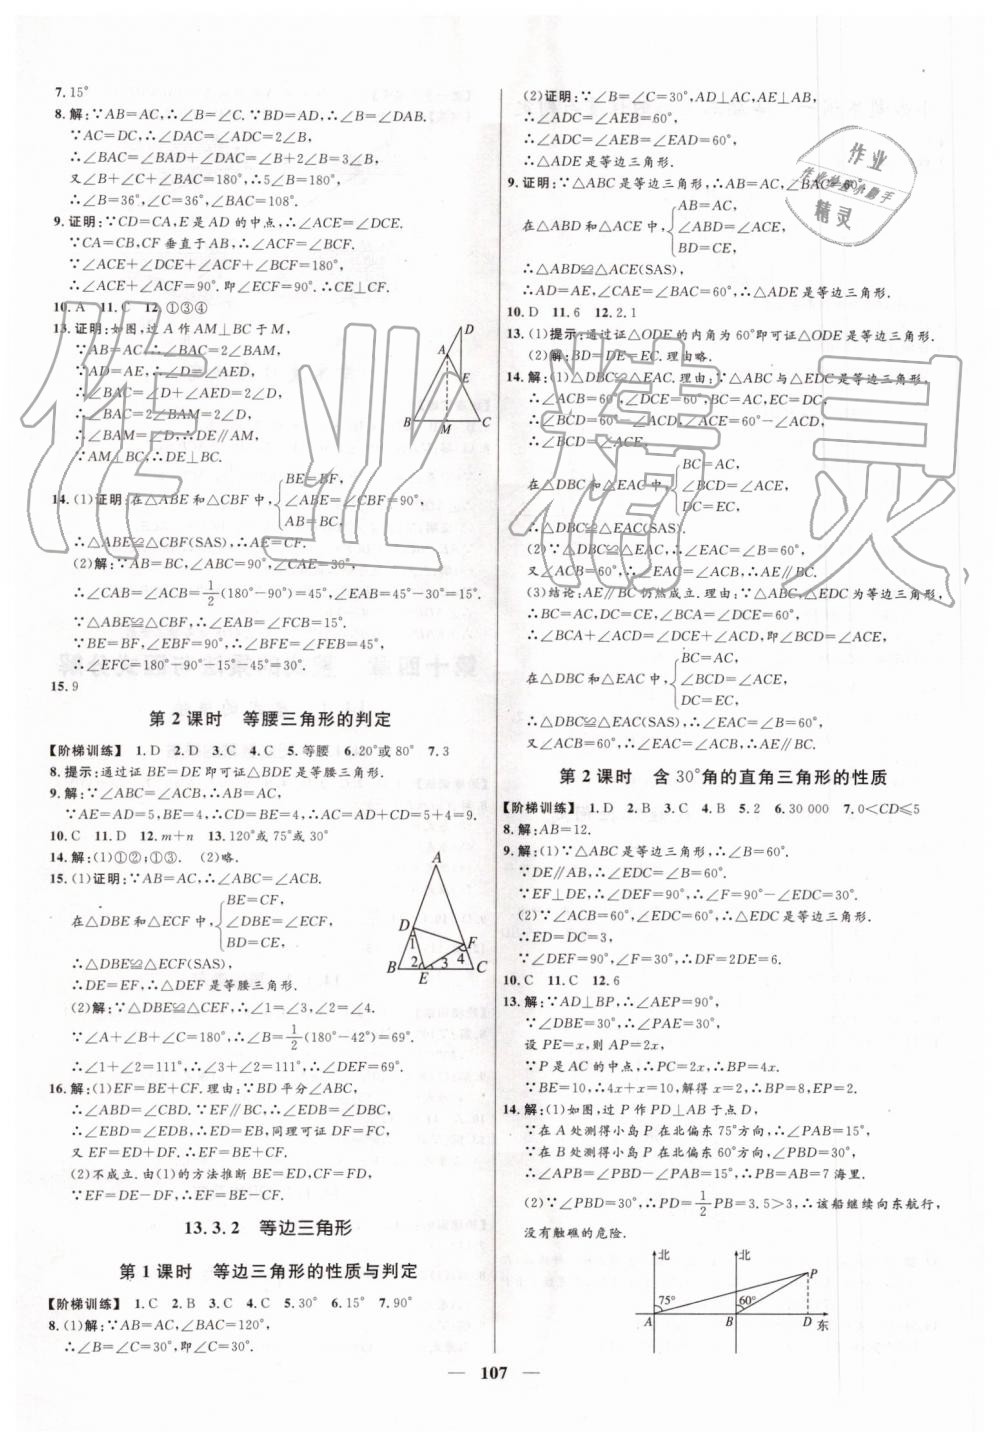 7. 15°
8. 解:∵AB=AC,∴∠B=∠C.∵BD=AD,∴∠B=∠DAB.
∵AC=DC,∴∠DAC=∠ADC=2∠B,
∴∠BAC=∠BAD+∠DAC=∠B+2∠B=3∠B,
又∠B+∠C+∠BAC=180°,∴5∠B=180°,
∴∠B=36°,∠C=36°,∠BAC=108°.
9. 证明:∵CD=CA,E是AD的中点,∴∠ACE=∠DCE.
∵CA=CB,CF垂直于AB,∴∠ACF=∠BCF.
∵∠ACE+∠DCE+∠ACF+∠BCF=180°,
∴∠ACE+∠ACF=90°.即∠ECF=90°.∴CE⊥CF.
10. A 11. C 12. ①③④
13. 证明:如图,过A作AM⊥BC于M,
∵AB=AC,∴∠BAC=2∠BAM,
∵AD=AE,∴∠D=∠AED,
∴∠BAC=∠D+∠AED=2∠D,
∴∠BAC=2∠BAM=2∠D,
∴∠BAM=∠D,∴DE∥AM,
∵AM⊥BC,∴DE⊥BC.
D
A
E
B M C
14. (1)证明:在△ABE和△CBF中,{BE=BF, ∠ABE=∠CBF=90°, AB=BC,
∴△ABE≌△CBF(SAS),∴AE=CF.
(2)解:∵AB=BC,∠ABC=90°,∠CAE=30°,
∴∠CAB=∠ACB=1/2(180°-90°)=45°,∠EAB=45°-30°=15°.
∵△ABE≌△CBF,∴∠EAB=∠FCB=15°.
∵BE=BF,∠EBF=90°,∴∠BFE=∠FEB=45°.
∴∠EFC=180°-90°-15°-45°=30°.
15. 9
第2课时 等腰三角形的判定
【阶梯训练】 1. D 2. D 3. C 4. C 5. 等腰 6. 20°或80° 7. 3
8. 提示:通过证BE=DE即可证△BDE是等腰三角形.
9. 解:∵∠B=∠C,∴AB=AC.
∵AE=AD=5,BE=4,∴CD=BE=4,∴AC=AD+CD=5+4=9.
10. C 11. D 12. m+n 13. 120°或75°或30°
14. 解:(1)①②;①③. (2)略.
15. (1)证明:∵AB=AC,∴∠ABC=∠ACB.
在△DBE和△ECF中,{BE=CF, ∠DBE=∠ECF, BD=CE,
∴△DBE≌△ECF(SAS),
∴DE=EF,∴△DEF是等腰三角形.
(2)解:∵△DBE≌△ECF,∴∠1=∠3,∠2=∠4.
∵∠A+∠B+∠C=180°,∴∠B=1/2(180°-42°)=69°.
∴∠1+∠2=111°,∴∠3+∠2=111°,∴∠DEF=69°.
A
D
F
1
2 3 4
B E C
16. 解:(1)EF=BE+CF.理由:∵BD平分∠ABC,
∴∠ABD=∠CBD.∵EF∥BC,∴∠EDB=∠DBC,
∴∠EBD=∠EDB,∴BE=ED,同理可证DF=FC,
又EF=ED+DF,∴EF=BE+CF.
(2)不成立.由(1)的方法推断BE=ED,CF=FD,
∵EF=DE-DF,∴EF=BE-CF.
13.3.2 等边三角形
第1课时 等边三角形的性质与判定
【阶梯训练】 1. C 2. B 3. C 4. C 5. 30° 6. 15° 7. 90°
8. (1)解:∵AB=AC,∠BAC=120°,
∴∠B=∠C=30°,即∠C=30°.
(2)证明:∵∠B=∠C=30°,AD⊥AC,AE⊥AB,
∴∠ADC=∠AEB=60°,
∴∠ADC=∠AEB=∠EAD=60°,
∴△ADE是等边三角形.
9. 证明:∵△ABC是等边三角形,∴AB=AC,∠BAC=60°.
在△ABD和△ACE中,{AB=AC, ∠ABD=∠ACE, BD=CE,
∴△ABD≌△ACE(SAS),
∴AD=AE,∠CAE=∠BAC=60°,∴△ADE是等边三角形.
10. D 11. 6 12. 2.1
13. (1)提示:通过证△ODE的内角为60°即可证△ODE是等边三角形.
(2)解:BD=DE=EC.理由略.
14. 解:(1)△DBC≌△EAC.理由:∵△ABC与△EDC是等边三角形,
∴∠ACB=60°,∠DCE=60°,BC=AC,EC=DC,
∴∠BCD=60°-∠ACD,∠ACE=60°-∠ACD,
∴∠BCD=∠ACE.
在△DBC和△EAC中,{BC=AC, ∠BCD=∠ACE, DC=EC,
∴△DBC≌△EAC(SAS).
(2)∵△DBC≌△EAC,∴∠EAC=∠B=60°,
又∠ACB=60°,∴∠EAC=∠ACB,∴AE∥BC.
(3)结论:AE∥BC仍然成立.理由:∵△ABC,△EDC为等边三角形,
∴BC=AC,DC=CE,∠BCA=∠DCE=60°,
∴∠BCA+∠ACD=∠DCE+∠ACD,即∠BCD=∠ACE,
在△DBC和△EAC中,{BC=AC, ∠BCD=∠ACE, DC=EC,
∴△DBC≌△EAC(SAS),∴∠EAC=∠B=60°,
又∠ACB=60°,∴∠EAC=∠ACB,∴AE∥BC.
第2课时 含30°角的直角三角形的性质
【阶梯训练】 1. D 2. B 3. C 4. B 5. 2 6. 30 000 7. 0<CD≤5
8. 解:AB=12.
9. 解:(1)∵△ABC是等边三角形,∴∠B=60°.
∵DE∥AB,∴∠EDC=∠B=60°.
∵EF⊥DE,∴∠DEF=90°,∴∠F=90°-∠EDC=30°.
(2)∵∠ACB=60°,∠EDC=60°,∴△EDC是等边三角形.
∴ED=DC=3,
∵∠DEF=90°,∠F=30°,∴DF=2DE=6.
10. C 11. C 12. 6
13. 解:∵AD⊥BP,∴∠AEP=90°,
∵∠DBE=30°,∴∠PAE=30°.
设PE=x,则AP=2x,
∵P是AC的中点,∴PC=2x,∴BP=4x.
∵BE=10,∴4x+x=10,解得x=2,∴BP=8,EP=2.
14. 解:(1)如图,过P作PD⊥AB于点D,
∵在A处测得小岛P在北偏东75°方向,∴∠PAB=15°,
∵在B处测得小岛P在北偏东60°方向,∴∠PBD=30°,
∴∠APB=∠PBD-∠PAB=15°=∠PAB,∴PB=AB=7海里.
(2)∵∠PBD=30°,∴PD=1/2PB=3.5>3,∴该船继续向东航行,
没有触礁的危险.
北 北
75° 60° P
A B D 东
107
作业精灵
作业
精灵